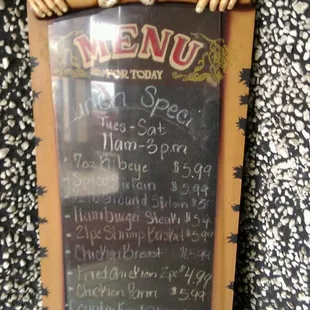 MENU
FOR TODAY
Lunch Speci
Tues-Sat
11am-3p.m
- 7oz Ribeye $5.99
- Spicy Sirloin $5.99
Ground Sirloin $5
- Hamburger Steak $5.
- 21pc Shrimp Basket $5.99
- Chicken Breast $5.99
- Fried Chicken 2pc $4.99
- Chicken Parm $5.99
Country